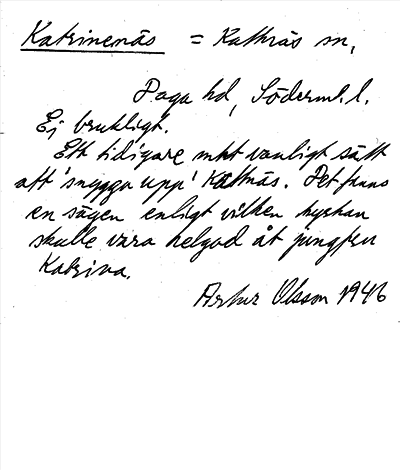 Katrinenäs = Kattnäs sn,
Daga hd, Söderml. l.
Ej brukligt.
Ett tidigare mkt vanligt sätt
att 'snygga upp' Kattnäs. Det finns
en sägen enligt vilken kyrkan
skulle vara helgad åt jungfru
Katrina.
Artur Olsson 1946